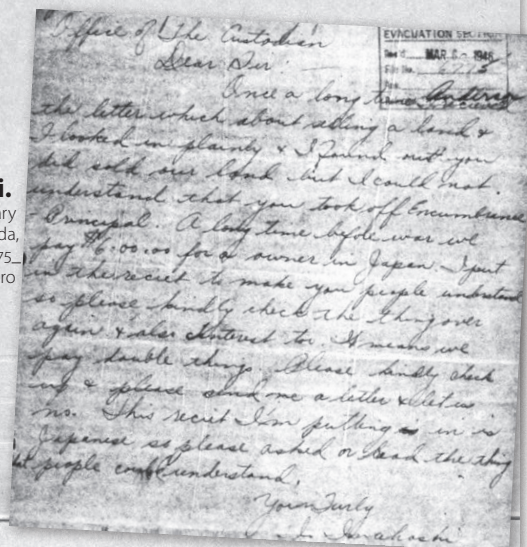 Office of The Custodian
EVACUATION SECTION
Rec'd MAR 1946
File No.
Dear Sir:
Once a long time
the letter which about selling a land &
I looked in plainly & I found out you
did sold our land but I could not
understand that you took off Encumbrance
- Principal. A long time before war we
pay $6.00.00 for a owner in Japan. I put
in the reciet to make you people understand
so please kindly check the thing over
again & also Interest to. It means we
pay double things. Please kindly check
up & please send me a letter & let us
no. This reciet I'm putting in is
Japanese so please asked or read the thing
people could understand.
Yours Turly
i.
ary
da,
75_
ro